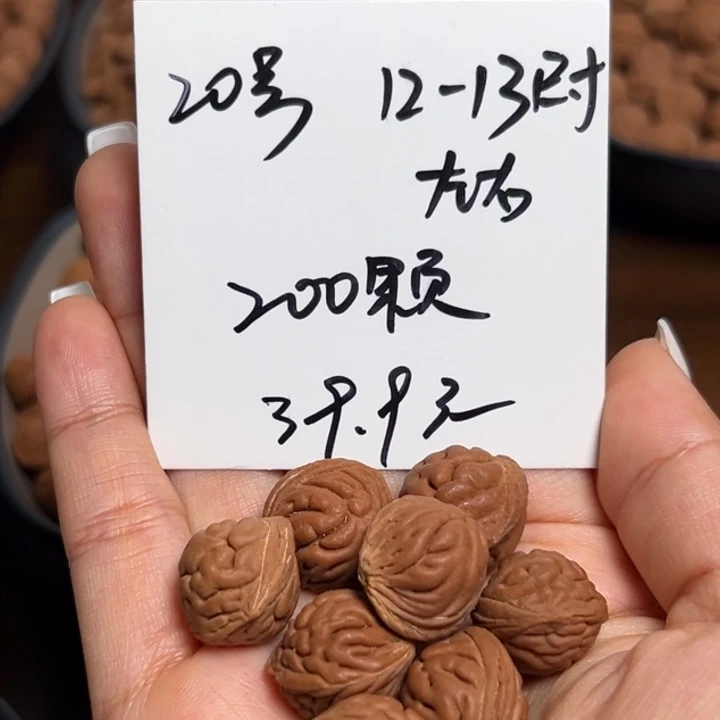 20号 12-13尉
左右
200颗
39.9元